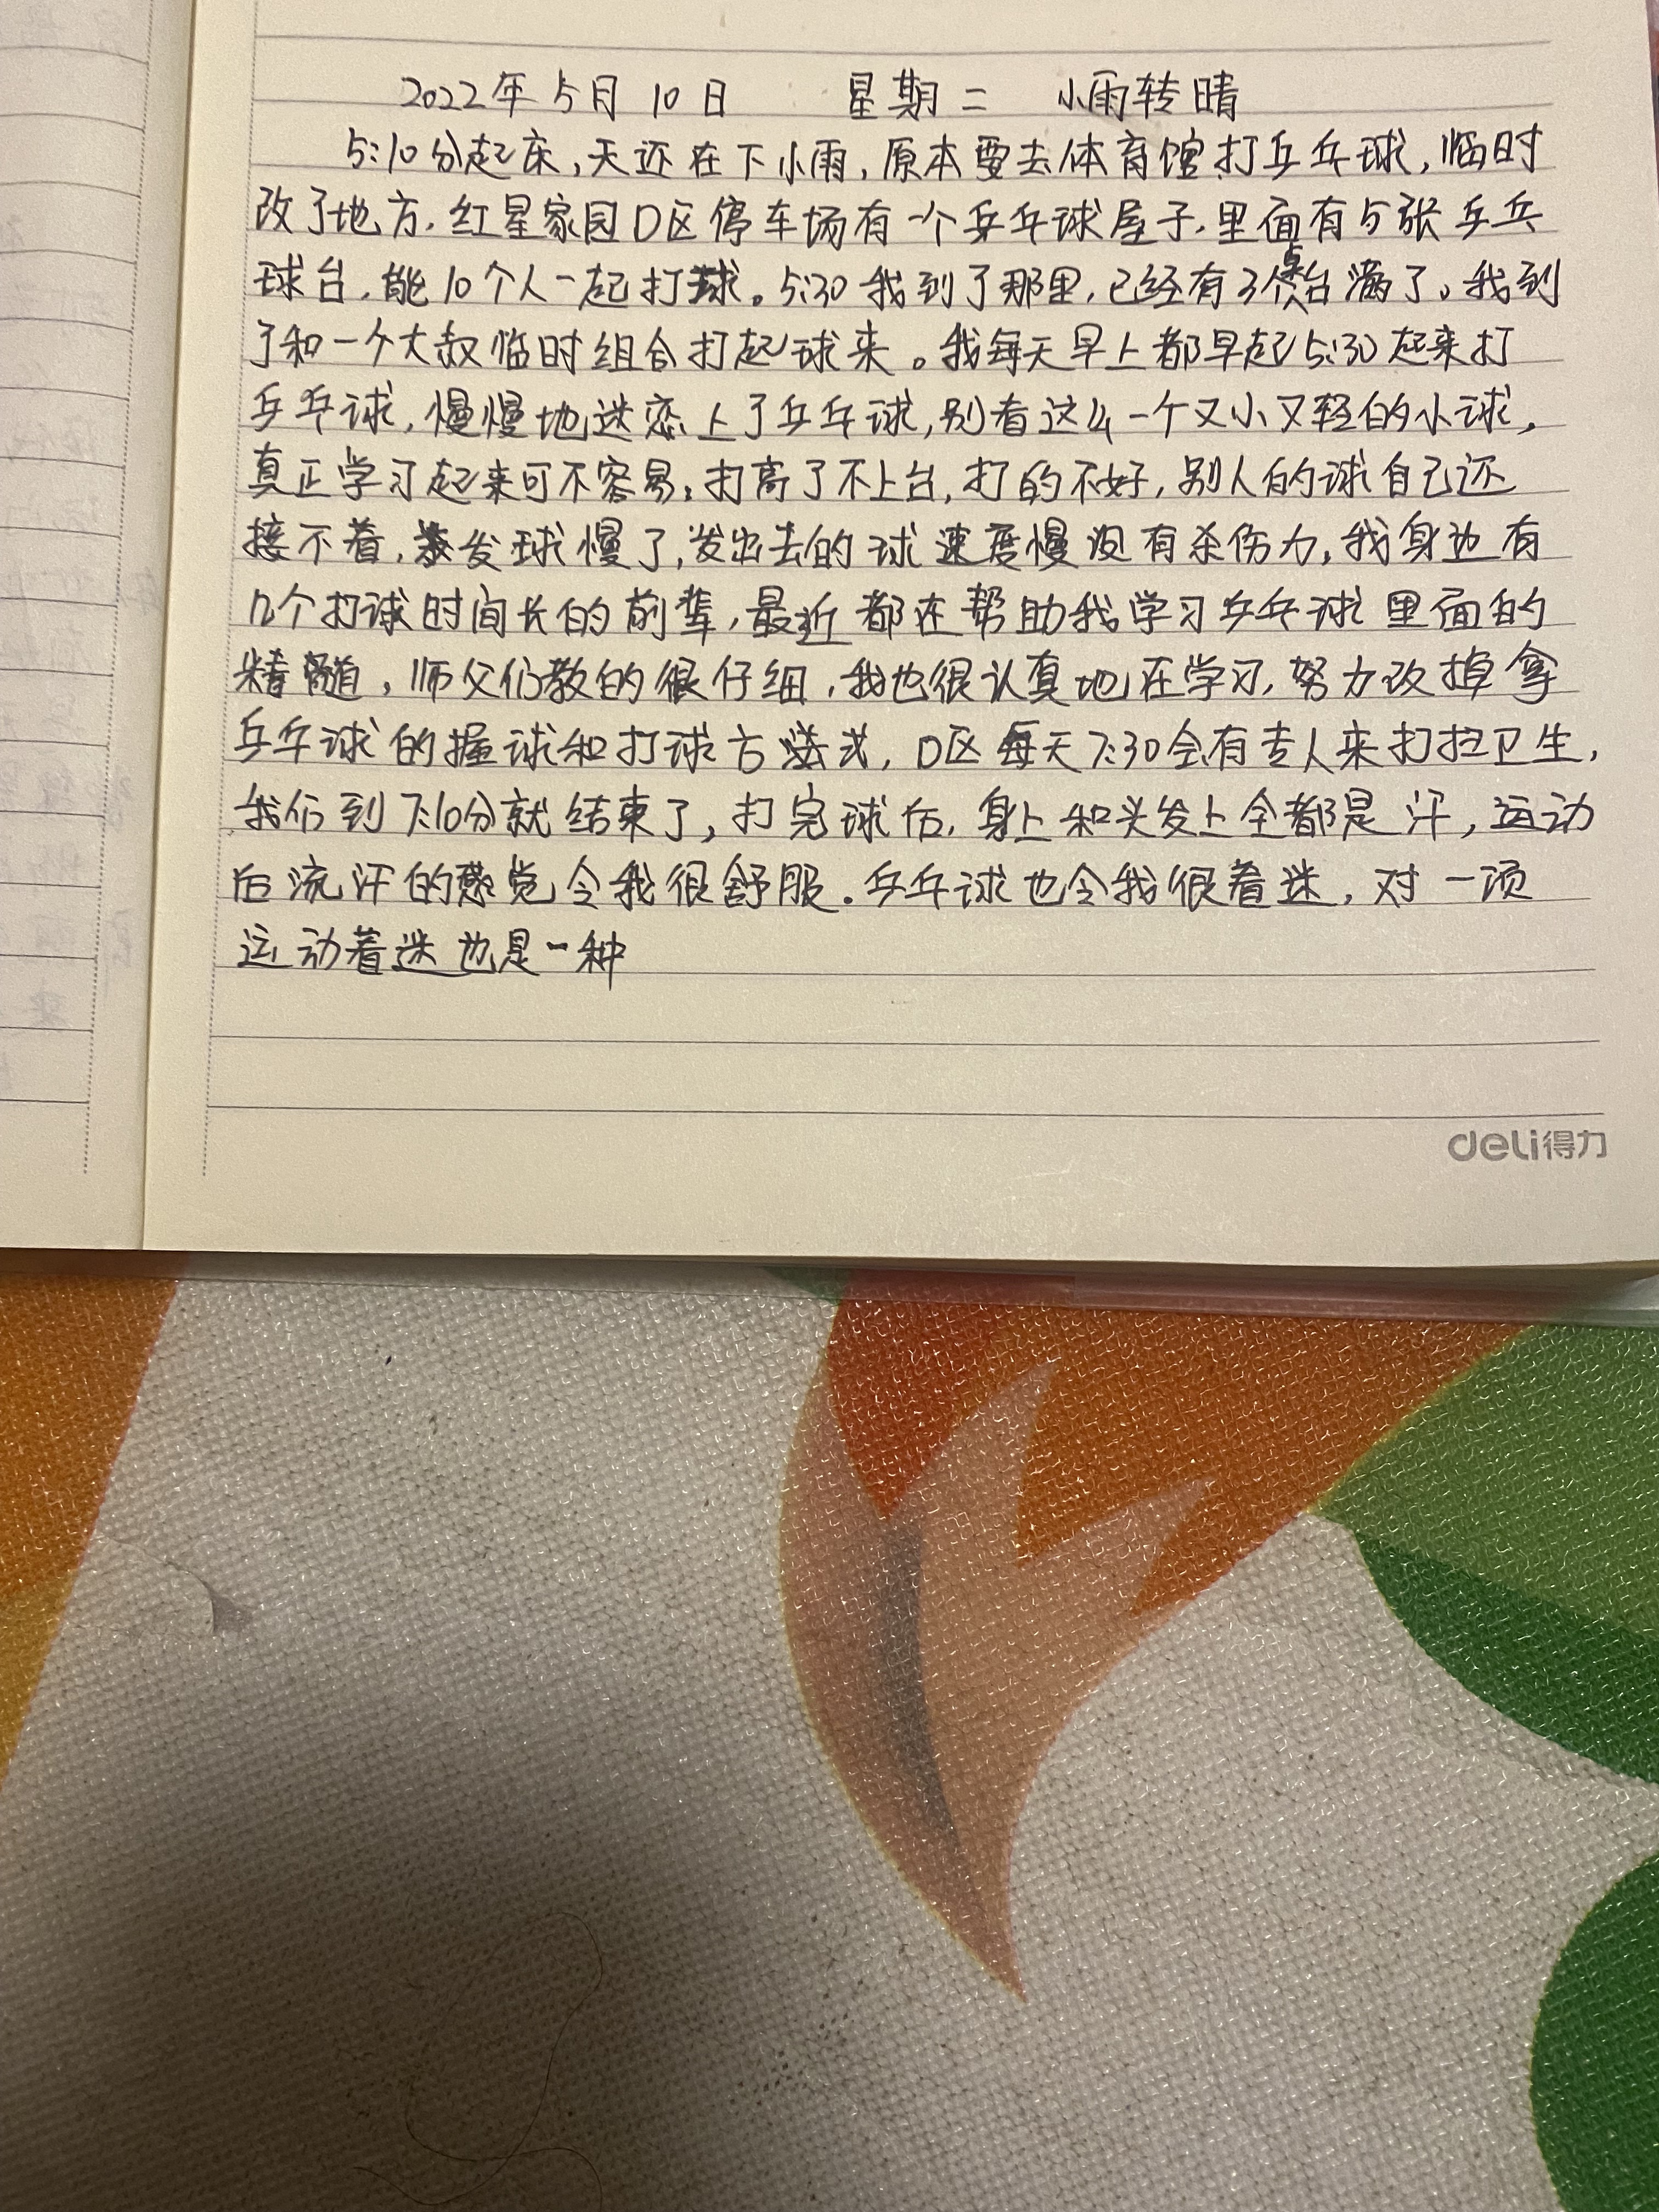 2022年5月10日 星期二 小雨转晴
5:10分起床,天还在下小雨,原本要去体育馆打乒乓球,临时
改了地方,红星家园D区停车场有一个乒乓球屋子,里面有5张乒乓
球台,能10个人一起打球。5:30我到了那里,已经有3桌台满了。我到
了和一个大叔临时组合打起球来。我每天早上都早起5:30起来打
乒乓球,慢慢地迷恋上了乒乓球,别看这么一个又小又轻的小球,
真正学习起来可不容易,打高了不上台,打的不好,别人的球自己还
接不着,发球慢了,发出去的球速度慢没有杀伤力,我身边有
几个打球时间长的前辈,最近都在帮助我学习乒乓球里面的
精髓,师父们教的很仔细,我也很认真地在学习,努力改掉拿
乒乓球的握球和打球方式,D区每天7:30会有专人来打扫卫生,
我们到7:10分就结束了,打完球后,身上和头发上全都是汗,运动
后流汗的感觉令我很舒服.乒乓球也令我很着迷,对一项
运动着迷也是一种
deli得力